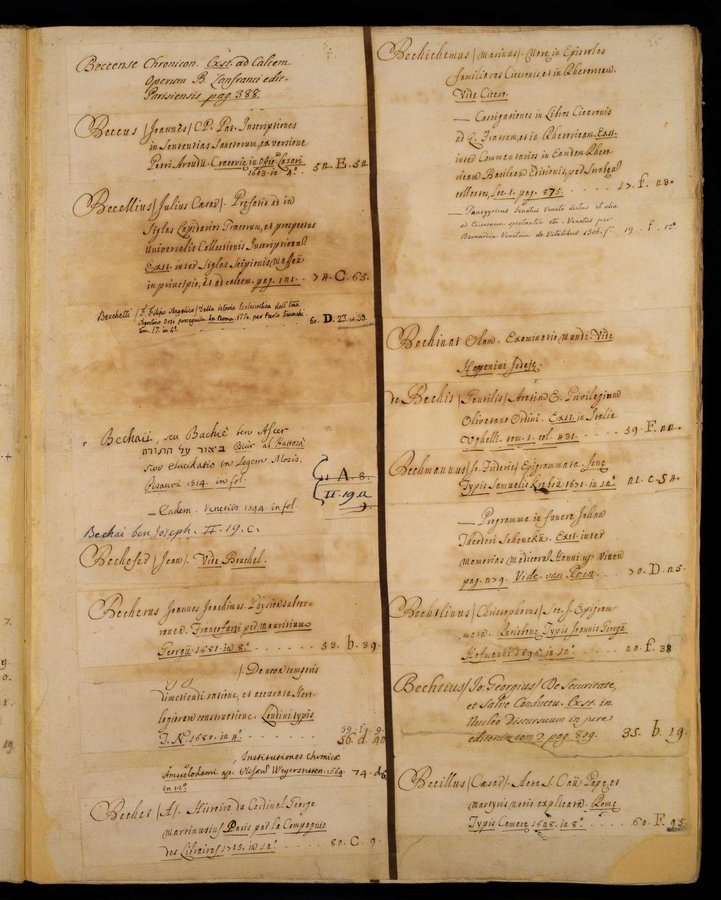 Beccense Chronicon. Exst. ad Calcem
Operum B. Lanfranci edit.
Parisiensis pag. 388.
Beccus /Joannes/ C.P. Pat. Inscriptiones
in Sententias Sanctorum, ex versione
Petri Arcudii
1683. in 4°. 52. E. 52.
Becellius /Julius Cæsar/. Præfatio ad in
Siglas Lapidarias Græcorum, et prospectus
universalis Collectionis Inscriptionum
Exst. inter Siglas Scipionis Maffeii
in principio, et ad calcem. pag. 74. C. 65.
Becchetti /F. Filippo Angelico/ Della istoria Ecclesiastica dell'
Agostino Orsi proseguita. In Roma 1770. per Paolo Giunchi
tom. 17. in 4°. 60. D. 23. 39.
Bechaii, seu Bachie ben Ascer
ביאור על התורה Biur al Hattora
sive elucidatio in Legem Mosis.
Pisauri 1514. in fol. 11 A. 8.
II. 19. a
— Eadem. Venetiis 1544 in fol.
Bechai ben Joseph. II. 19. c.
Bechefer /Jean/. Vide Bouchel.
Becherus Joannes Joachimus. Physica subter-
ranea. Francofurti per Mauritium
Georgii 1681. in 8°. 53. b. 39.
/. De nova temporis
dimetiendi ratione, et accurata Hor-
logiorum constructione. Londini typis
J. N. 1680. in 4°. 59. f. 9.
56. d. 40
, Institutiones Chimicæ
Amstelodami ap. Elizeum Weyerstraten. 1664 74. d
in 12°.
Bechet /A/. Histoire du Cardinal George
Martinusius Paris par la Compagnie
des Libraires 1715. in 12°. 80. C. 9.
Bechichemus /Marinus/. Notæ in Epistolas
familiares Ciceronis, et in Rhetoricam.
Vide Cicero.
— Castigationes in Libros Ciceronis
ad Q. Fratrem, et in Rhetoricam. Exst.
inter Commentarios in Eandem Rhet-
ricam Basileæ Editionis, per
collectos, loc. 1. pag. 875. 17. f.
— Panegyricus Senatus Veneto dictus et alia
ad Ciceronem spectantia etc. Venetiis per
Bernardin. Venetum de Vitalibus 1506. f° 19. f. 12.
Bechinat Olam. Examinatio mundi. Vide
Hapenini Jedaja.
de Bechis /Gentilis/ Aretin. E. Privilegium
Olivetano Ordini. Exst. in Italia
Ughelli. tom. 1. col. 431. 59. F.
Bechmannus /Jo. Fridericus/ Epigrammata. Jenæ
Typis Samuelis Krebsii 1671. in 12°. 21. c. 54.
— Programma in funere Johan
Theodori Schenckii. Exst. inter
memorias medicorum Henningi Witten
pag. 179. Vide van Roia. 70. D. 25.
Bechtlinus /Christophorus/ Soc. J. Epigram-
mata. Typis Joannis Georgii
Hofmanni 1696. in 12°. 20. f. 38
Bechtius /Jo. Georgius/ De Securitate,
et Salvo Conductu. Exst. in
Nucleo Discursuum in jure
editorum tom. 2. pag. 809. 35. b. 19.
Becillus /Cæsar/. Acta S. Caii Papæ et
Martyris notis explicata. Romæ
Typis Cameræ 1628. in 8°. 60. F. 95.